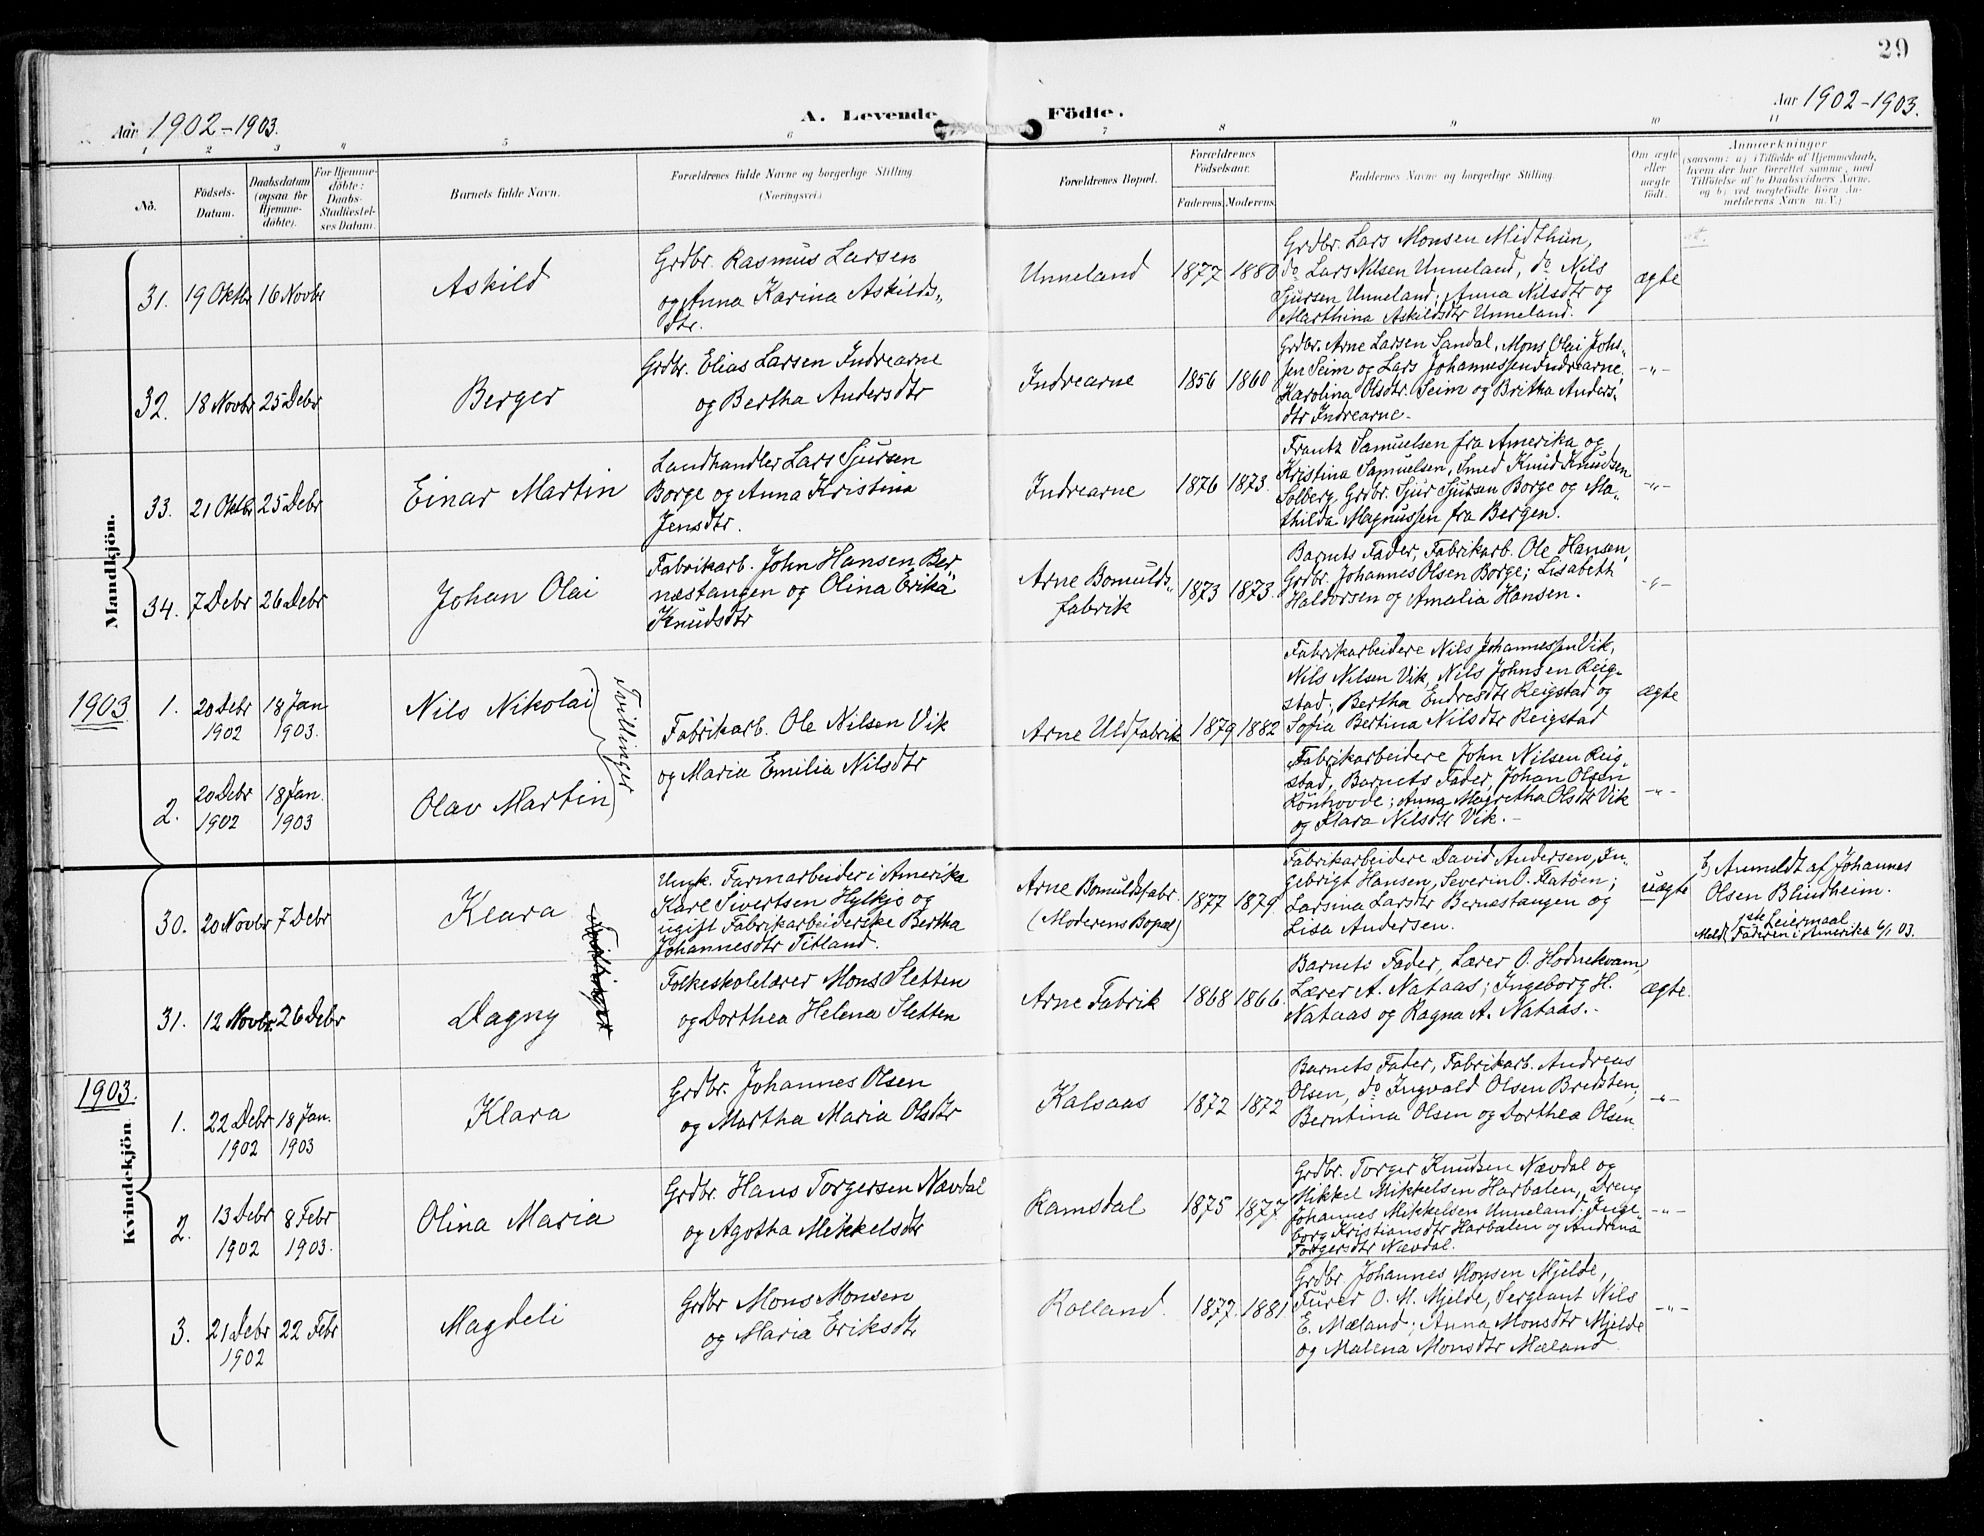 29
Aar 1902-1903.
A. Levende Födte.
Aar 1902-1903.
1 2 3 4 5 6 7 8 9 10 11
No.
Födsels-
Datum.
Daabsdatum
(ogsaa for
Hjemme-
döbte).
For Hjemme-
döbte:
Daabs-
Stadfæstel-
ses Datum.
Barnets fulde Navn.
Forældrenes fulde Navne og borgerlige Stilling
(Næringsvei).
Forældrenes Bopæl.
Forældrenes
Födselsaar.
Faderens. Moderens.
Faddernes Navne og borgerlige Stilling.
Om ægte
eller
uægte
födt.
Anmærkninger
(saasom: a) i Tilfælde af Hjemmedaab,
hvem der har forrettet samme, med
Tilföielse af to Daabsvidners Navne,
og b) ved uægtefödte Börn An-
melderens Navn m.V.)
Mandkjön.
31. 19 Oktbr 16 Novbr
Askild
Grdbr. Rasmus Larsen
og Anna Karina Askilds-
dtr.
Unneland
1877 1880
Grdbr. Lars Monsen Midthun,
do Lars Nilsen Unneland, do Nils
Sjursen Unneland; Anna Nilsdtr og
Marthina Askildsdtr Unneland.
ægte
32. 18 Novbr 25 Debr
Berger
Grdbr. Elias Larsen Indrearne
og Bertha Andersdtr
Indrearne
1856 1860
Grdbr. Arne Larsen Sandal, Mons Olai Johs-
sen Seim og Lars Johannessen Indrearne,
Karolina Olsdtr. Seim og Britha Anders-
dtr Indrearne.
-"-
33. 21 Oktbr 25 Debr
Einar Martin
Landhandler Lars Sjursen
Borge og Anna Kristina
Jensdtr.
Indrearne
1876 1873.
Frantz Samuelsen fra Amerika og
Kristina Samuelsen, Smed Knud Knudsen
Solberg, Grdbr. Sjur Sjursen Borge og Ma-
thilda Magnussen fra Bergen.
-"-
34. 7 Debr 26 Debr
Johan Olai
Fabrikarb. John Hansen Ber-
næstangen og Olina Erika
Knudsdtr
Arne Bomulds-
fabrik
1873 1873.
Barnets Fader, Fabrikarb. Ole Hansen,
Grdbr. Johannes Olsen Borge; Lisabeth
Haldorsen og Amalia Hansen.
-"-
1903
1. 20 Debr 18 Jan
1902 1903.
Nils Nikolai
Tvillinger
Fabrikarb. Ole Nilsen Vik
og Maria Emilia Nilsdtr
Arne Uldfabrik
1879 1882
Fabrikarbeidere Nils Johannessen Vik,
Nils Nilsen Vik, Nils Johnsen Reig-
stad; Bertha Endresdtr Reigstad og
Sofia Bertina Nilsdtr Reigstad
ægte
2. 20 Debr 18 Jan.
1902 1903
Olav Martin
Fabrikarbeidere John Nilsen Reig-
stad, Barnets Fader, Johan Olsen
Rönhovde; Anna Magretha Olsdtr Vik
og Klara Nilsdtr Vik.-
-"-
Kvindekjön.
30. 20 Novbr 7 Debr
Klara
Tvillinger
Ungk. Farmarbeider i Amerika
Karl Sivertsen Hylkje og
ugift Fabrikarbeiderske Bertha
Johannesdtr Titland.
Arne Bomuldsfabr.
(Moderens Bopæl)
1877 1879
Fabrikarbeidere David Andersen, In-
gebrigt Hansen, Severin O. Flatöen;
Larsina Larsdtr Bernæstangen og
Lisa Andersen.
uægte
b) Anmeldt af Johannes
Olsen Blindheim.
1ste Leiermaal
Meldt Faderen i Amerika 6/1 03.
31. 12 Novbr. 26 Debr
Dagny
Folkeskolelærer Mons Sletten
og Dorthea Helena Sletten
Arne Fabrik
1868 1866.
Barnets Fader, Lærer O. Hodnekvam,
Lærer A. Nataas; Ingeborg H.
Nataas og Ragna A. Nataas.-
ægte.
1903.
1. 22 Debr 18 Jan.
1902 1903
Klara
Grdbr. Johannes Olsen
og Martha Maria Olsdtr
Kalsaas
1872 1872
Barnets Fader, Fabrikarb. Andreas
Olsen, do Ingvald Olsen Bredsten;
Berntina Olsen og Dorthea Olsen
-"-
2. 13 Debr 8 Febr
1902 1903.
Olina Maria
Grdbr. Hans Torgersen Nævdal
og Agotha Mikkelsdtr
Ramsdal
1875 1877
Grdbr. Torger Knudsen Nævdal og
Mikkel Mikkelsen Harbalen, Dreng
Johannes Mikkelsen Unneland; Inge-
borg Kristiansdtr Harbalen og Andrina
Torgersdtr Nævdal.
-"-
3. 21 Debr 22 Febr
1902
Magdeli
Grdbr Mons Monsen
og Maria Eriksdtr
Rolland.
1877. 1881
Grdbr. Johannes Monsen Mjelde,
Furer O. M. Mjelde, Sergeant Nils
E. Mæland; Anna Monsdtr Mjelde
og Malena Monsdtr Mæland
-"-